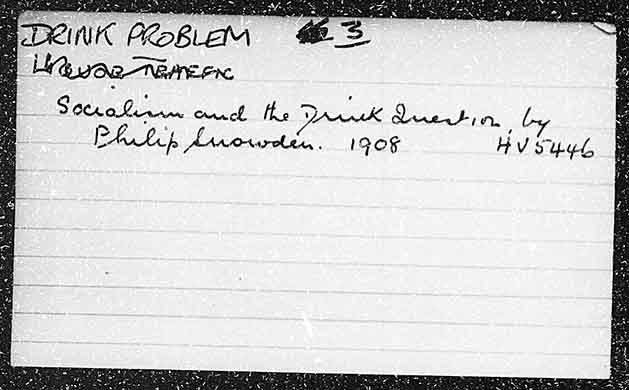 DRINK PROBLEM 3
LIQUOR TRAFFIC
Socialism and the Drink Question, by
Philip Snowden. 1908 HV5446